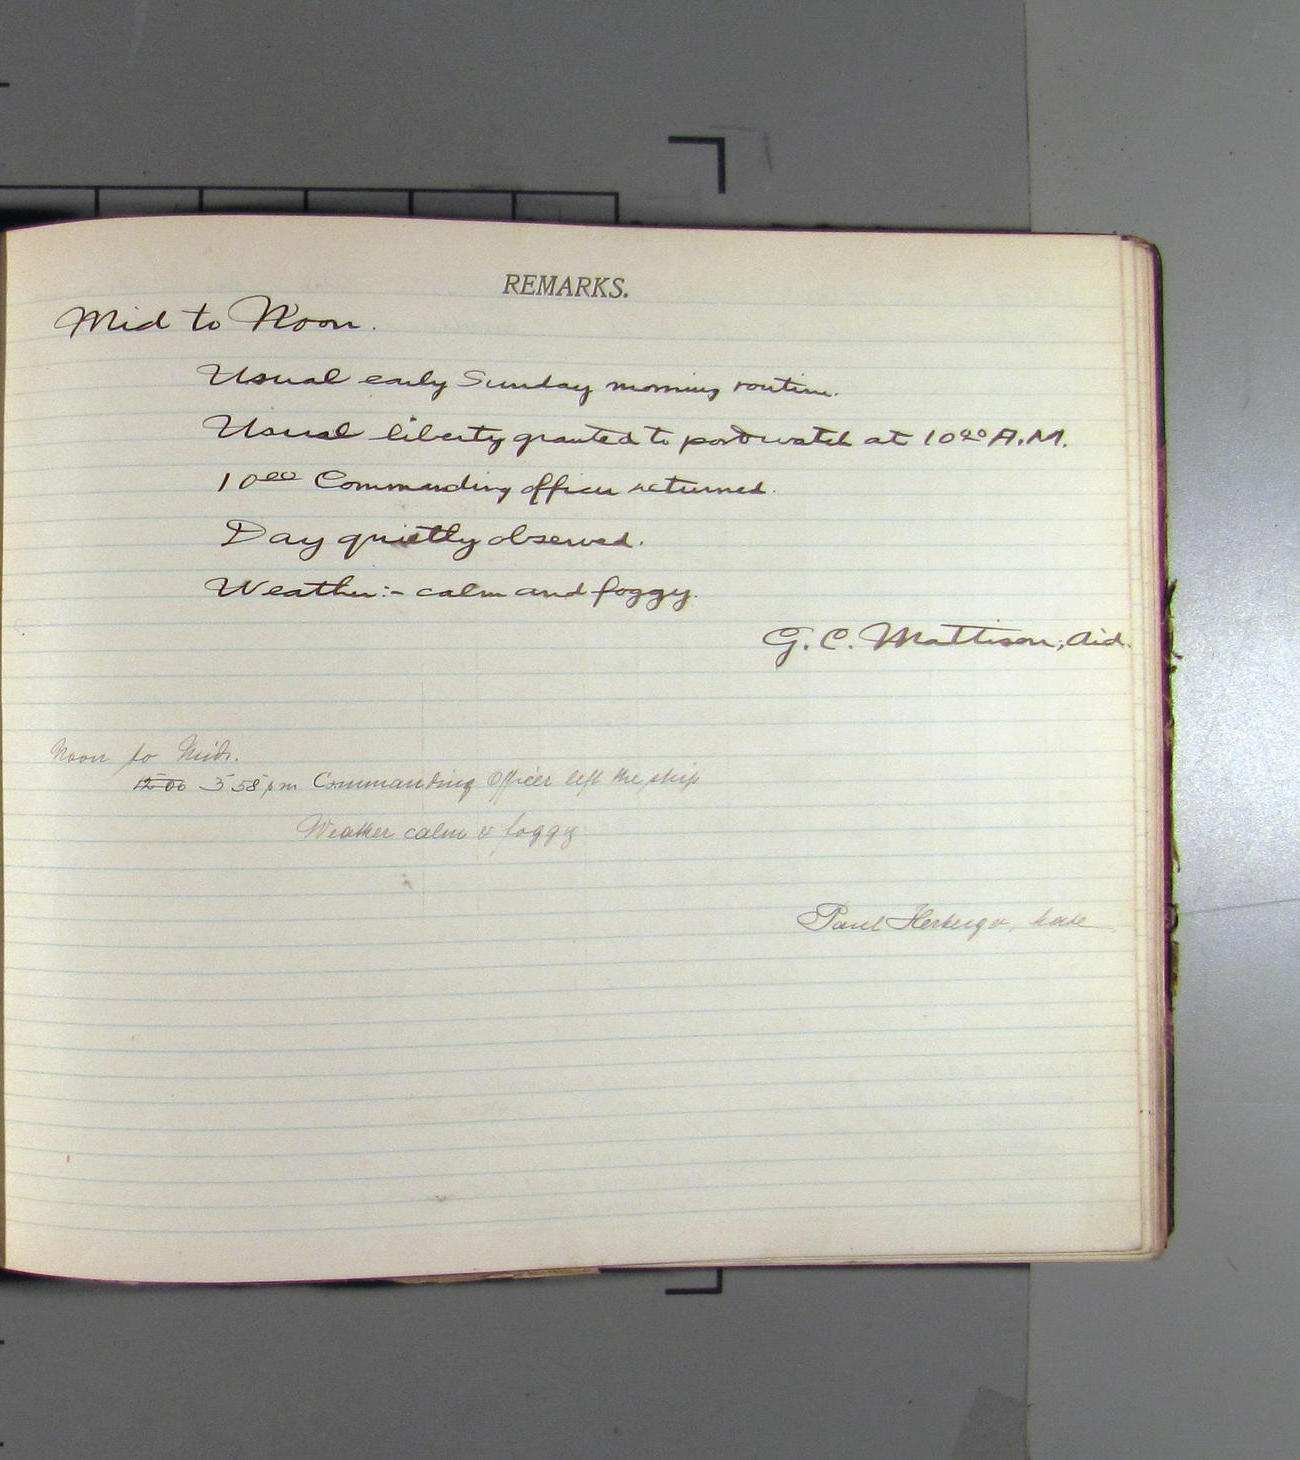 REMARKS.
Mid to Noon.
Usual early Sunday morning routine.
Usual liberty granted to port watch at 10 A.M.
10 00 Commanding officer returned.
Day quietly observed.
Weather:- calm and foggy.
G. C. Mattison, Aid.
Noon to Mid.
12 00 3 58 pm Commanding Officer left the ship
Weather calm & foggy
Paul